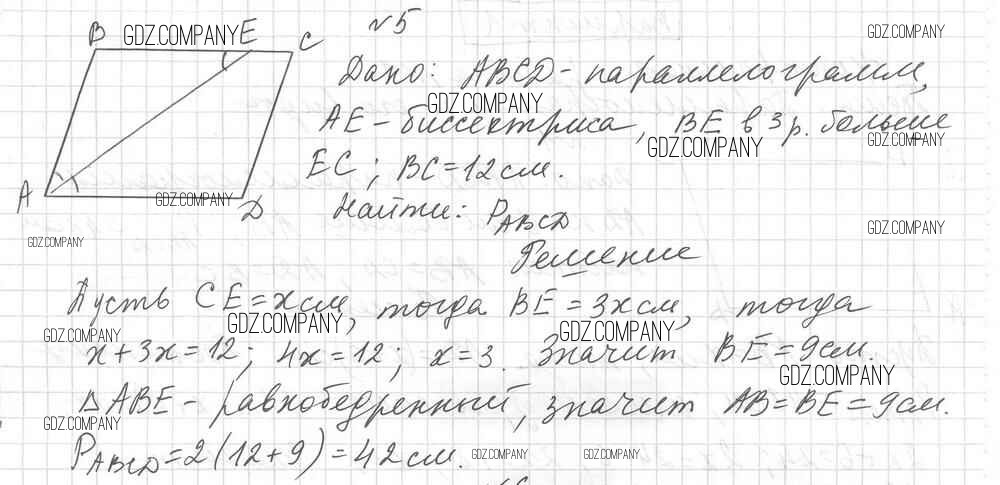 №5
B GDZ.COMPANY E C GDZ.COMPANY
Дано: ABCD - параллелограмм,
GDZ.COMPANY
AE - биссектриса, BE в 3 р. больше
GDZ.COMPANY GDZ.COMPANY
EC; BC = 12 см.
A GDZ.COMPANY D
Найти: P_ABCD
GDZ.COMPANY GDZ.COMPANY
Решение
Пусть CE = x см, тогда BE = 3x см, тогда
GDZ.COMPANY GDZ.COMPANY GDZ.COMPANY
x + 3x = 12; 4x = 12; x = 3. Значит BE = 9 см.
GDZ.COMPANY
△ABE - равнобедренный, значит AB = BE = 9 см.
GDZ.COMPANY
P_ABCD = 2(12 + 9) = 42 см.
GDZ.COMPANY GDZ.COMPANY